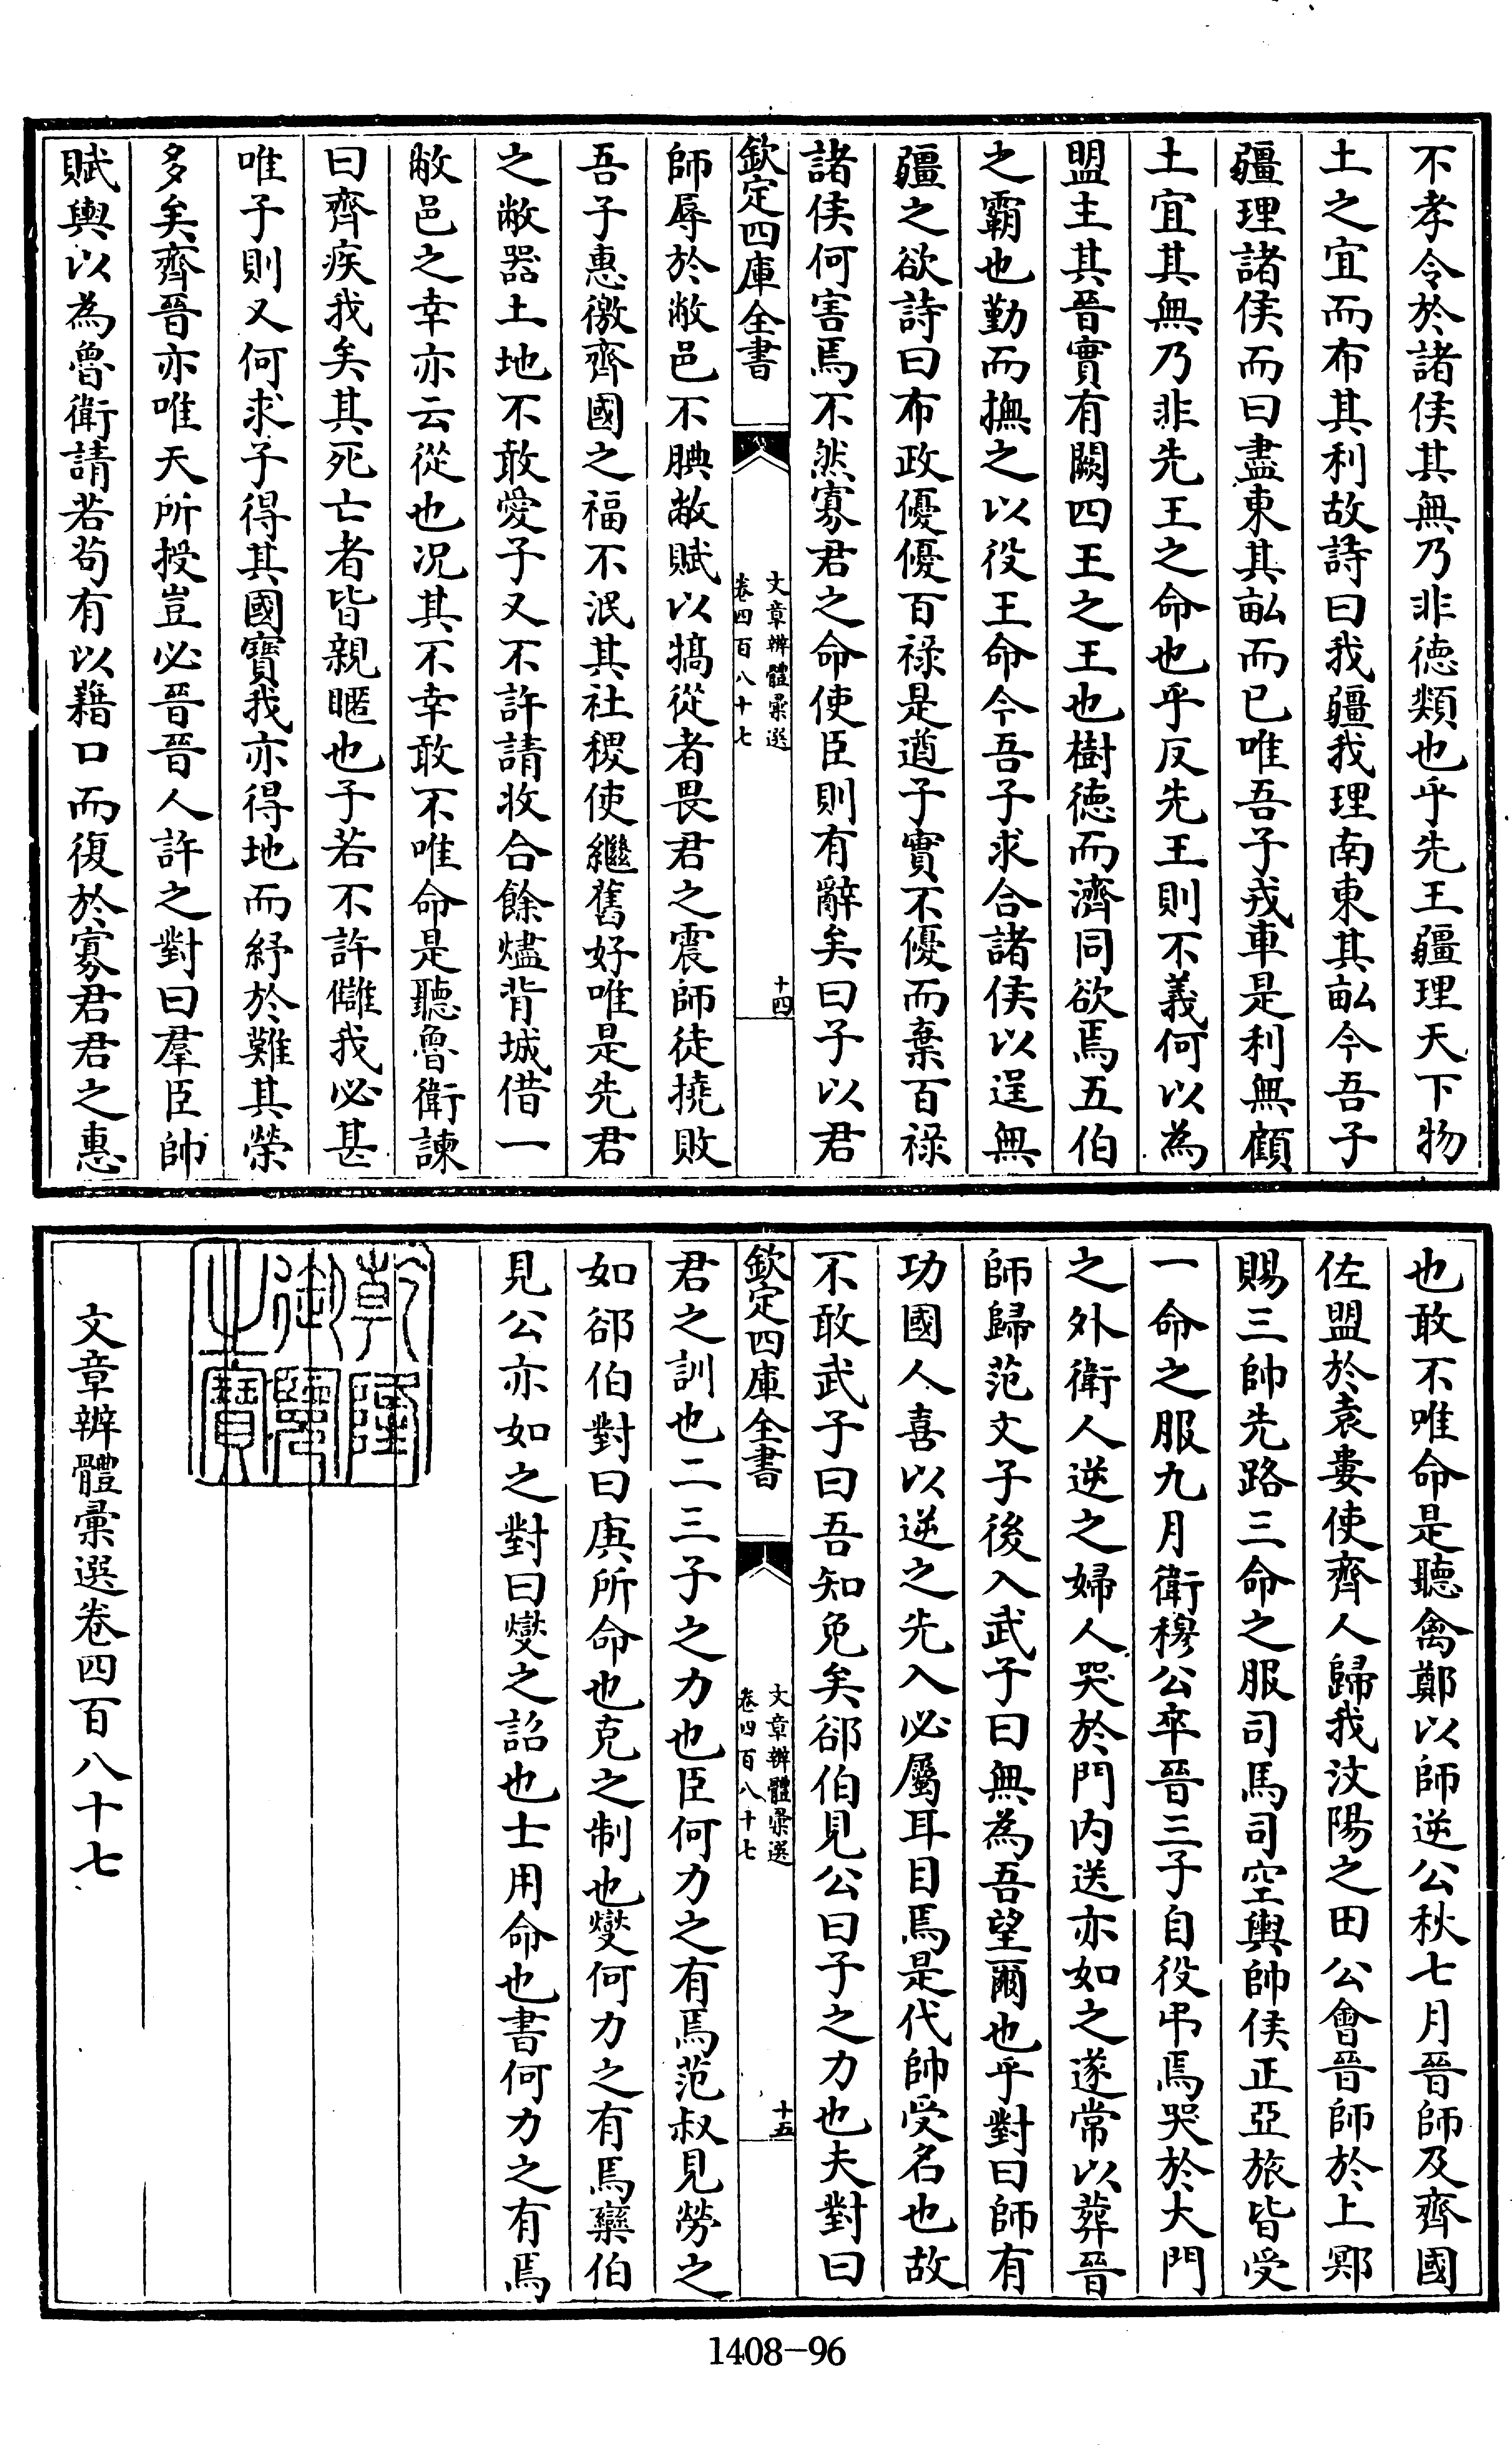 不孝令於諸侯其無乃非徳類也乎先王疆理天下物
土之宜而布其利故詩曰我疆我理南東其畝今吾子
疆理諸侯而曰盡東其畝而已唯吾子戎車是利無顧
土宜其無乃非先王之命也乎反先王則不義何以為
盟主其晉實有闕四王之王也樹徳而濟同欲焉五伯
之霸也勤而撫之以役王命今吾子求合諸侯以逞無
疆之欲詩曰布政優優百禄是遒子實不優而棄百禄
諸侯何害焉不然寡君之命使臣則有辭矣曰子以君
欽定四庫全書
文章辨體彚選
卷四百八十七
十四
師辱於敝邑不腆敝賦以犒從者畏君之震師徒撓敗
吾子惠徼齊國之福不泯其社稷使繼舊好唯是先君
之敝器土地不敢愛子又不許請收合餘燼背城借一
敝邑之幸亦云從也况其不幸敢不唯命是聽魯衛諫
曰齊疾我矣其死亡者皆親暱也子若不許讎我必甚
唯子則又何求子得其國寶我亦得地而紓於難其榮
多矣齊晉亦唯天所授豈必晉晉人許之對曰羣臣帥
賦輿以為魯衛請若苟有以藉口而復於寡君君之惠
也敢不唯命是聽禽鄭以師逆公秋七月晉師及齊國
佐盟於袁婁使齊人歸我汶陽之田公會晉師於上鄍
賜三帥先路三命之服司馬司空輿帥侯正亞旅皆受
一命之服九月衛穆公卒晉三子自役弔焉哭於大門
之外衛人逆之婦人哭於門内送亦如之遂常以葬晉
師歸范文子後入武子曰無為吾望爾也乎對曰師有
功國人喜以逆之先入必屬耳目焉是代帥受名也故
不敢武子曰吾知免矣郤伯見公曰子之力也夫對曰
欽定四庫全書
文章辨體彚選
卷四百八十七
十五
君之訓也二三子之力也臣何力之有焉范叔見勞之
如郤伯對曰庚所命也克之制也燮何力之有焉欒伯
見公亦如之對曰燮之詔也士用命也書何力之有焉
乾隆
御覽
之寶
文章辨體彚選卷四百八十七
1408-96